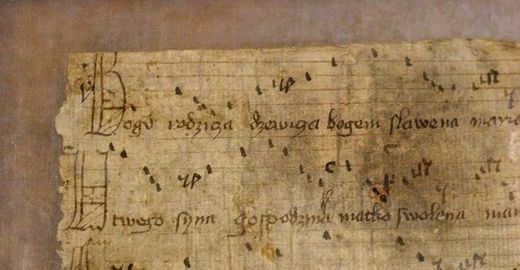 Bogv rodzicza dzewicza bogem slawena maria
U twego syna gospodzina matko swolena